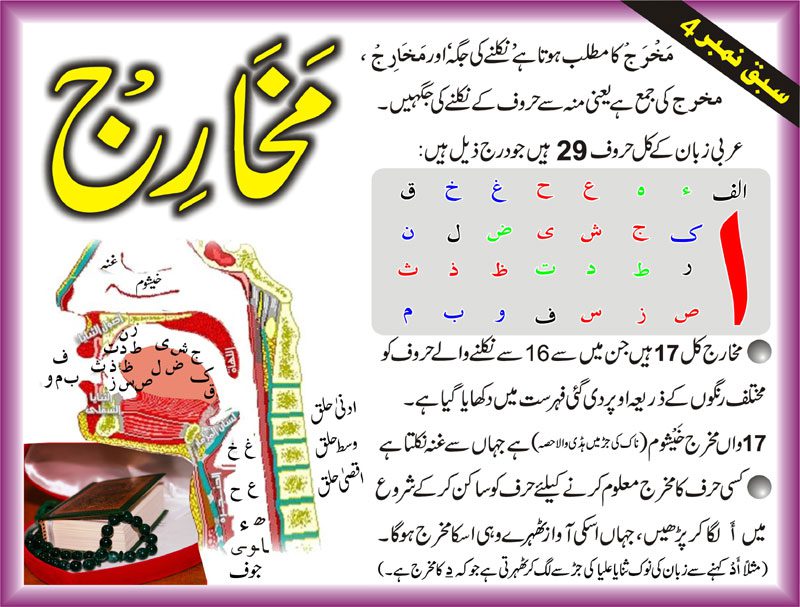 سبق نمبر 4
مَخَارِجُ
مَخْرَجْ کا مطلب ہوتا ہے نکلنے کی جگہ، اور مَخَارِجُ،
مخرج کی جمع ہے یعنی منہ سے حروف کے نکلنے کی جگہیں۔
عربی زبان کے کل حروف 29 ہیں جو درج ذیل ہیں:
الف ء ہ ع ح غ خ ق
ا ک ج ش ی ض ل ن
ر ط د ت ظ ذ ث
ص ز س ف و ب م
مخارج کل 17 ہیں جن میں سے 16 سے نکلنے والے حروف کو
مختلف رنگوں کے ذریعہ اوپر دی گئی فہرست میں دکھایا گیا ہے۔
17واں مخرج خَیْشُوم (ناک کی جڑ میں ہڈی والا حصہ) ہے جہاں سے غنہ نکلتا ہے
کسی حرف کا مخرج معلوم کرنے کیلئے حرف کو ساکن کر کے شروع
میں أَ لگا کر پڑھیں، جہاں اسکی آواز ٹھہرے وہی اسکا مخرج ہوگا۔
(مثلاً أَدْ کہنے سے زبان کی نوک ثنایا علیا کی جڑ سے لگ کر ٹھہرتی ہے جو کہ د کا مخرج ہے۔)
غنہ
خیشوم
اللهاة
ر ن
ط د ت
ظ ذ ث
ص س ز
ج ش ی
ض ل
ک
ق
ف
ب م و
الثنايا السفلى
ادنیٰ حلق
وسط حلق
اقصیٰ حلق
غ خ
ع ح
ھ ء
ا و ی
جوف